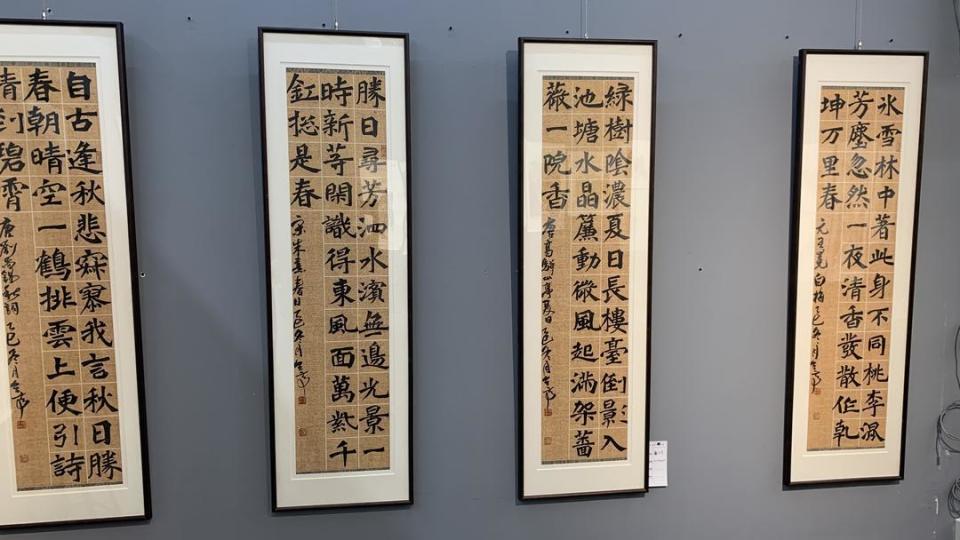 自古逢秋悲寂寥我言秋日勝
春朝晴空一鶴排雲上便引詩
情到碧霄
唐劉禹錫秋詞 乙巳冬月
勝日尋芳泗水濱無邊光景一
時新等閑識得東風面萬紫千
紅總是春
宋朱熹春日 乙巳冬月
綠樹陰濃夏日長樓臺倒影入
池塘水晶簾動微風起滿架薔
薇一院香
唐高駢山亭夏日 乙巳冬月
冰雪林中著此身不同桃李混
芳塵忽然一夜清香發散作乾
坤万里春
元王冕白梅 乙巳冬月